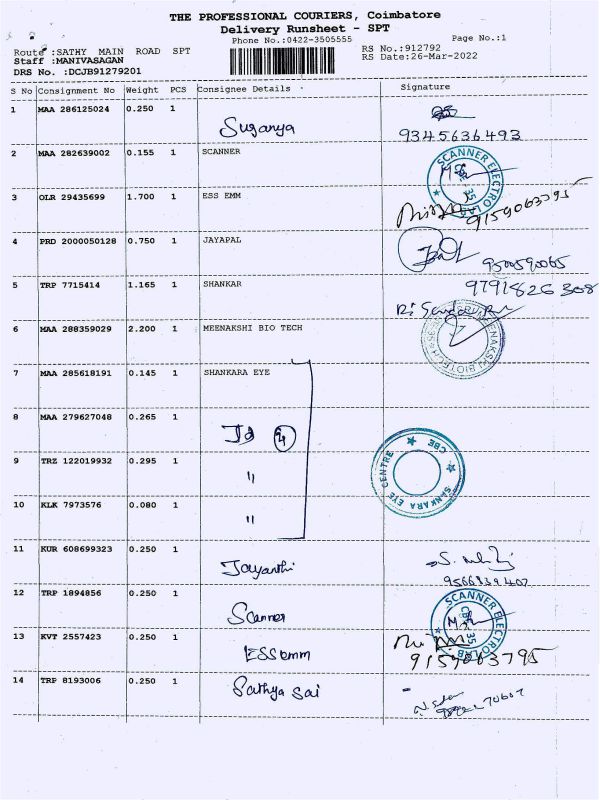 THE PROFESSIONAL COURIERS, Coimbatore
Delivery Runsheet - SPT
Phone No.:0422-3505555
Page No.:1
Route :SATHY MAIN ROAD SPT
RS No.:912792
Staff :MANIVASAGAN
RS Date:26-Mar-2022
DRS No. :DCJB91279201
S No Consignment No Weight PCS Consignee Details Signature
1 MAA 286125024 0.250 1
Suganya 9345636493
2 MAA 282639002 0.155 1 SCANNER
SCANNER ELECTRO LAB
3 OLR 29435699 1.700 1 ESS EMM
9159063795
4 PRD 2000050128 0.750 1 JAYAPAL
9500590065
5 TRP 7715414 1.165 1 SHANKAR 9791826308
6 MAA 288359029 2.200 1 MEENAKSHI BIO TECH
7 MAA 285618191 0.145 1 SHANKARA EYE
8 MAA 279627048 0.265 1
4
9 TRZ 122019932 0.295 1
"
SANKARA EYE CENTRE
CBE
10 KLK 7973576 0.080 1
"
11 KUR 608699323 0.250 1
Jayanthi
12 TRP 1894856 0.250 1
Scanner
SCANNER ELECTRO LAB
13 KVT 2557423 0.250 1
ESS emm 9159063795
14 TRP 8193006 0.250 1
Sathya Sai